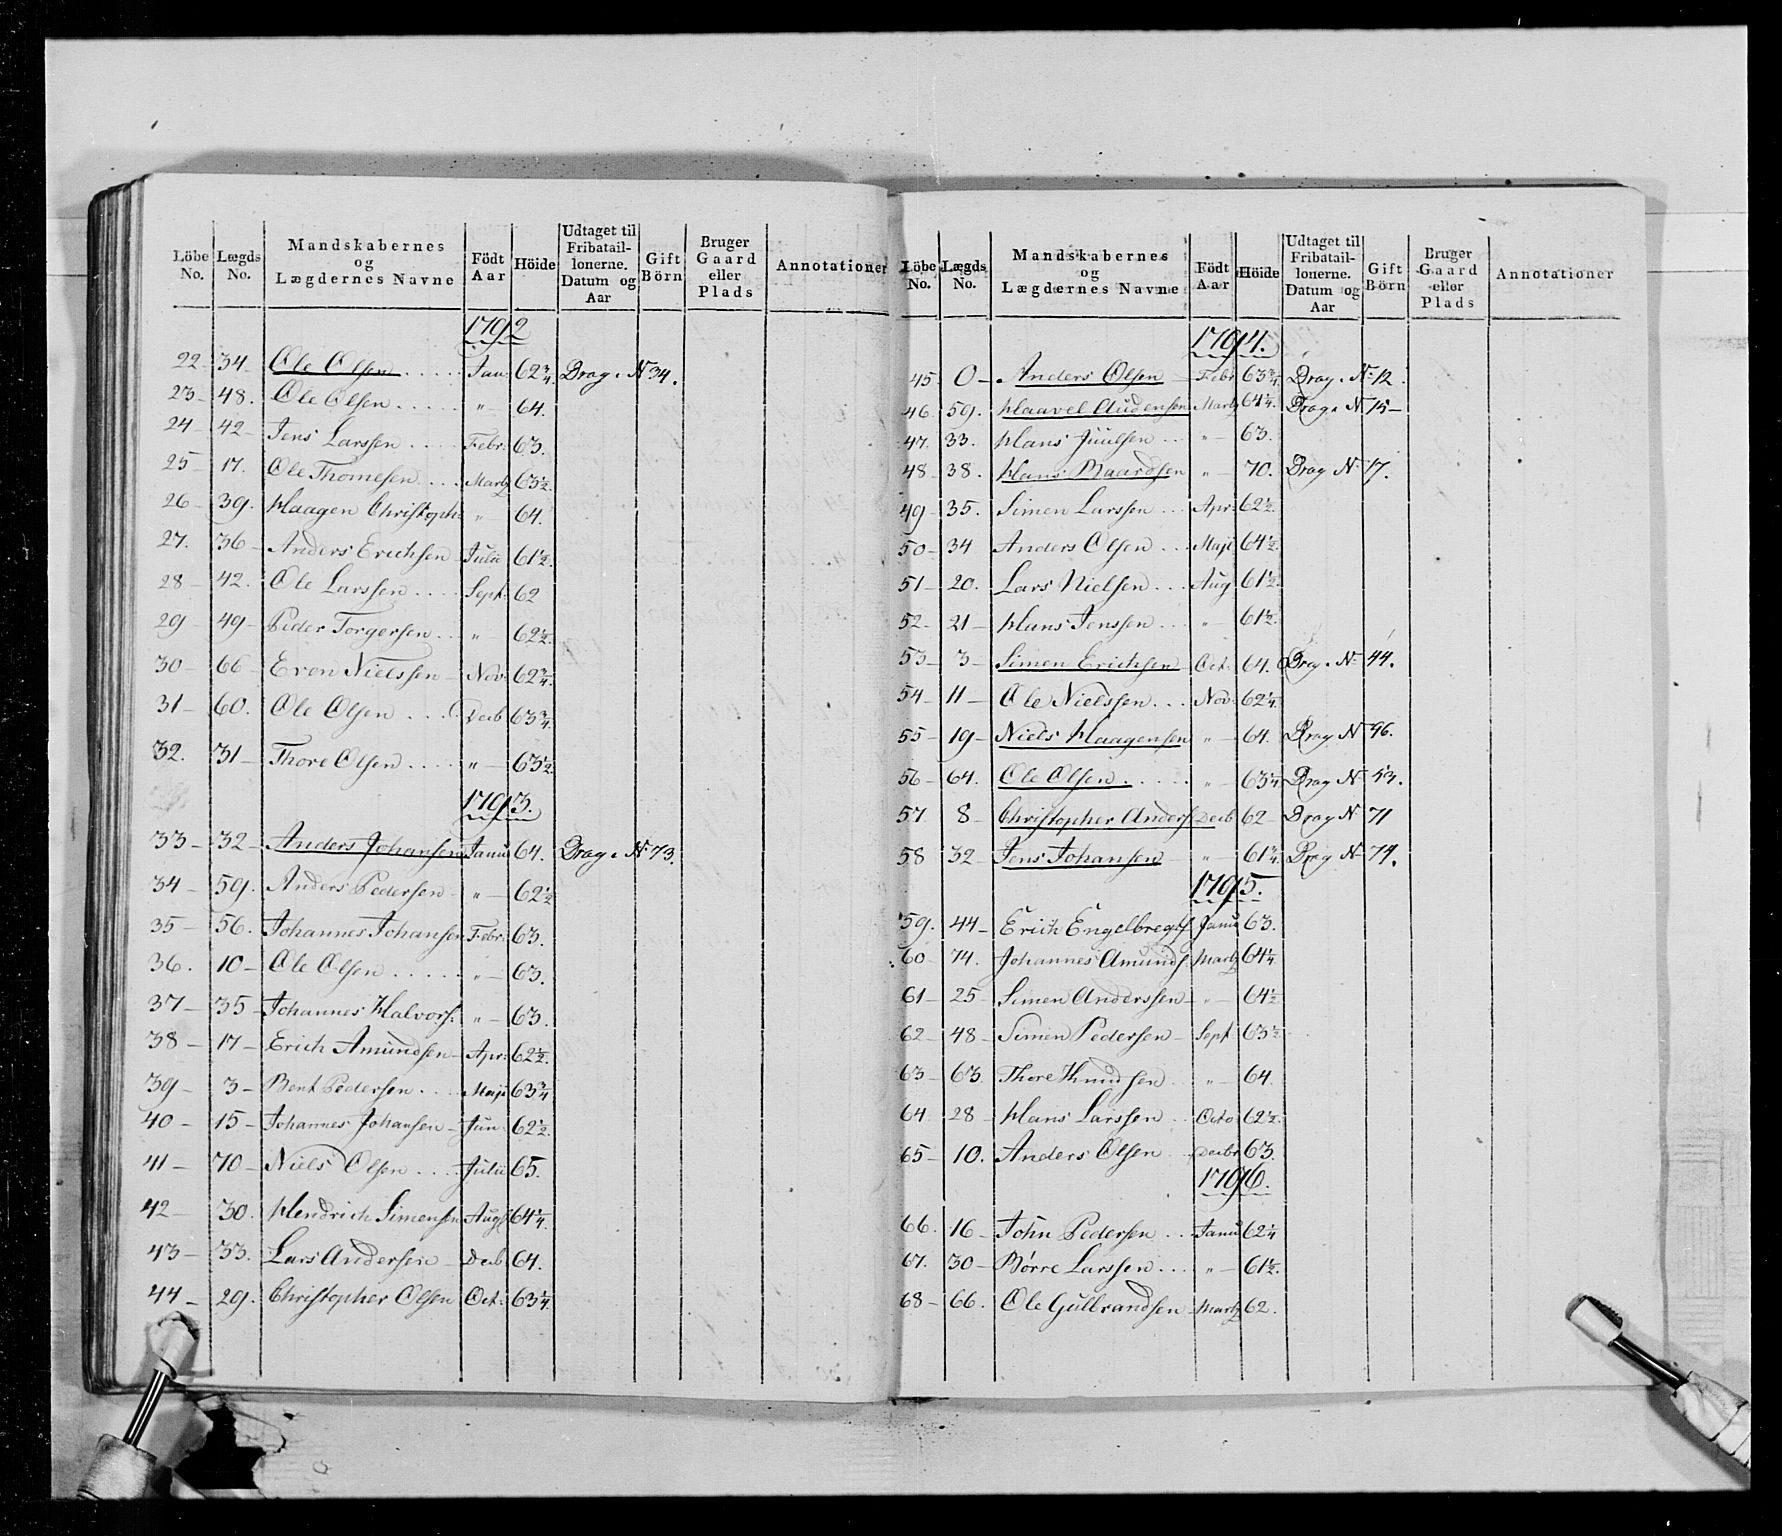 Löbe No. Lægds No. Mandskabernes og Lægdernes Navne Födt Aar Höide Udtaget til Fribatail- lonerne. Datum og Aar Gift Börn Bruger Gaard eller Plads Annotationer
1792
22 34 Ole Olsen Jan: 62 3/4 Drag. N 34.
23 48. Ole Olsen " 64.
24 42 Jens Larssen Febr: 63.
25 17. Ole Thomesen Martz 63 1/2.
26 39. Haagen Christoph: " 64.
27. 36 Anders Erichsen Julii 61 1/2.
28 42. Ole Larssen Sept: 62
29 49 Peder Torgersen " 62 1/2.
30 66 Even Nielssen Nov: 62 3/4.
31 60. Ole Olsen Decb 63 3/4.
32. 31 Thore Olsen " 63 1/2
1793.
33 32 Anders Johansen Janu 64. Drag. N: 73.
34 59. Anders Pedersen " 62 1/2
35 56. Johannes Johansen Febr: 63.
36. 10 Ole Olsen " 63.
37 35 Johannes Halvors: " 63.
38 17 Erich Amundsen Apr: 62 1/2.
39 3 Bent Pedersen Maji 63 3/4
40 15 Johannes Johansen Jun: 62 1/2.
41 70 Niels Olsen Julii 65.
42 30. Hendrich Simensen Aug 64 1/4.
43 33. Lars Andersen Decb 64.
44 29. Christopher Olsen Oct: 63 1/4.
Löbe No. Lægds No. Mandskabernes og Lægdernes Navne Födt Aar Höide Udtaget til Fribatail- lonerne. Datum og Aar Gift Börn Bruger Gaard eller Plads Annotationer
1794.
45 0 Anders Olsen Febr 63 3/4 Drag. N: 12.
46 59. Haavel Audensen Martz 64 1/4. Drag. N 15
47. 33. Hans Juulsen " 63.
48 38. Hans Baardsen " 70. Drag N 17.
49 35. Simen Larssen Apr: 62 1/2.
50 34 Anders Olsen Maji 64 1/2.
51 20. Lars Nielsen Aug 61 1/2.
52. 21 Hans Jenssen " 61 1/2.
53 3 Simen Erichsen Oct: 64. Drag. N: 44.
54 11 Ole Nielssen Nov: 62 1/4.
55 19 Niels Haagensen " 64. Drag. N 96.
56 64. Ole Olsen " 63 1/4 Drag N: 53.
57 8 Christopher Anders Decb 62 Drag N 71
58 32 Jens Johansen " 61 3/4. Drag N 74.
1795.
59. 44 Erich Engelbregts Janu 63.
60 74. Johannes Amunds Martz 64 1/4
61 25 Simen Anderssen " 64 1/2
62 48 Simen Pedersen Sept 63 1/2
63 63 Thore Knudsen " 64
64 28 Hans Larssen Octo 62 1/2.
65 10. Anders Olsen Decbr 63.
1796.
66. 16 John Pedersen Janu 62 1/4
67. 30 Børre Larssen " 61 1/2.
68 66. Ole Gulbrandsen Martz 62.